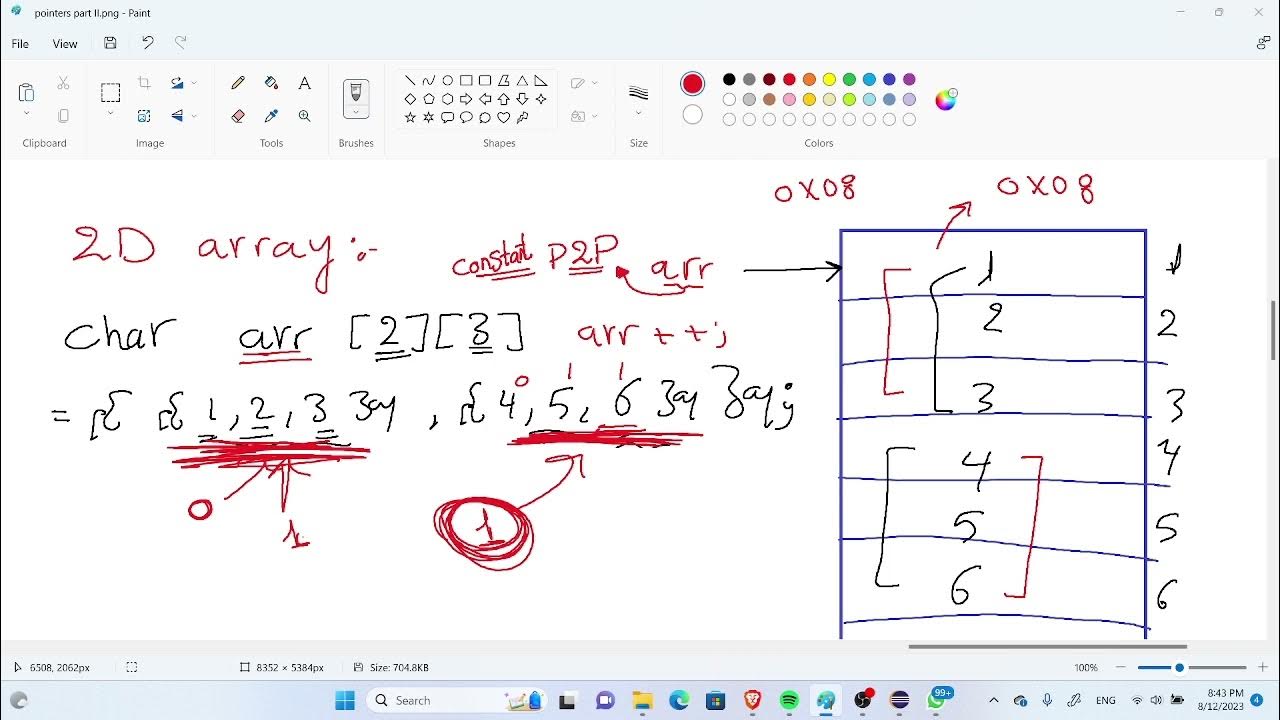 pointers part II.png - Paint
File View
Clipboard Image Tools Brushes Shapes Size Colors
0x08 0x08
2D array:-
constant P2P arr
char arr [2][3] arr++;
0 1 1
= { { 1, 2, 3 } , { 4, 5, 6 } };
0 1 1
1 1
2 2
3 3
4 4
5 5
6 6
6508, 2062px 8352 × 5384px Size: 704.8KB 100%
Search 99+ ENG 8:43 PM 4
8/12/2023